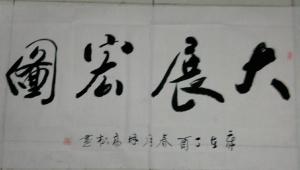 大展宏圖
歲在丁酉春月高松書